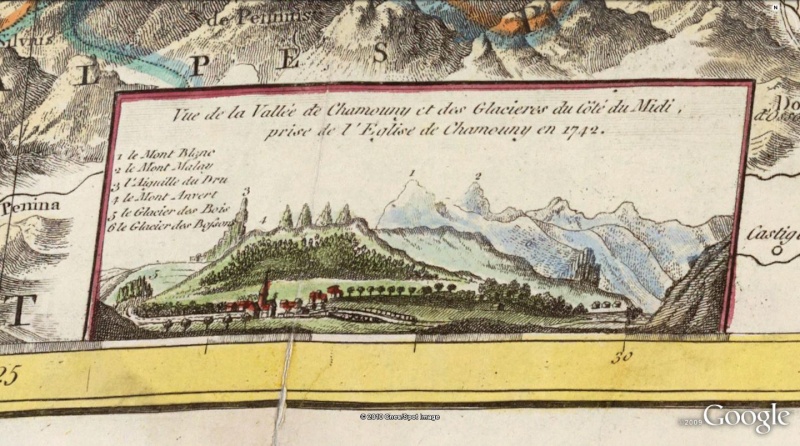 de Peninis
Silvais
A L P E S
N
Vue de la Vallée de Chamouny et des Glacieres du Côté du Midi,
prise de l'Eglise de Chamouny en 1742.
1 le Mont Blanc
2 le Mont Malay
3 l'Aiguille du Dru
4 le Mont Anvert
5 le Glacier des Bois
6 le Glacier des Bossons
1
2
3
4
5
Penina
T
Do
d'Osso
Castig
25
30
© 2010 Cnes/Spot Image
©2009 Google